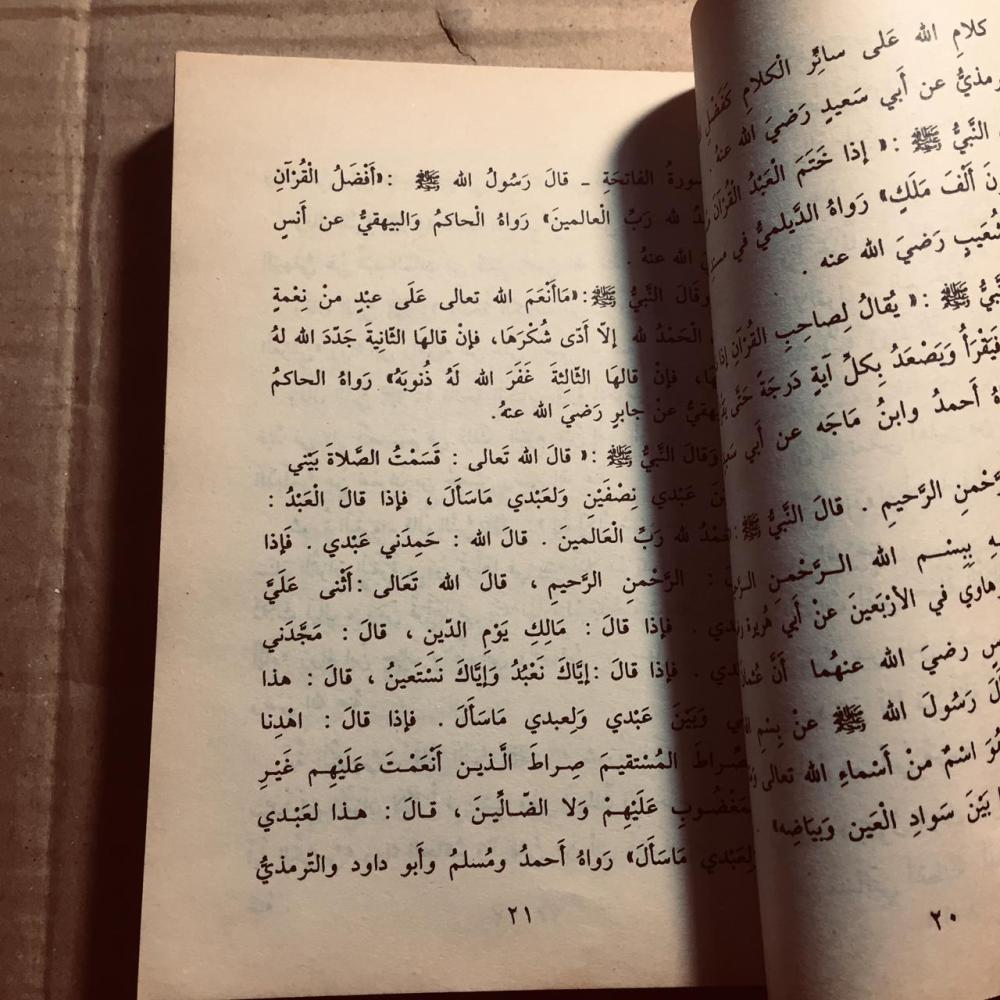 كلامِ الله عَلى سائِرِ الْكلامِ كَفَضْلِ
عن أَبي سَعيدٍ رَضيَ الله عنهُ
النَّبيُّ ﷺ :« إذا خَتَمَ الْعَبْدُ الْقُرْآنَ
أَلْفَ مَلَكٍ» رَواهُ الدَّيلميُّ في
شُعَيبٍ رَضيَ الله عنه .
ﷺ :« يُقالُ لِصاحِبِ الْقُرْآنِ إذا
فَيَقْرَأُ وَيَصْعَدُ بِكلِّ آيَةٍ دَرَجَةً حَتَّى
أَحمدُ وابنُ مَاجَه عن أَبي
الرَّحيمِ . قالَ النَّبيُّ ﷺ:
بِبِسْمِ الله الرَّحْمنِ
في الأَرْبَعينَ عنْ أَبي هُريرةَ
رضيَ الله عنهُما أَنَّ
رَسُولَ الله ﷺ عنْ بِسْمِ
اسْمٌ منْ أَسْماءِ الله تعالى
بَيْنَ سَوادِ الْعَينِ وَبَيَاضِهِ»
٢٠
سورةُ الفاتحَةِ ـ قالَ رَسُولُ الله ﷺ :«أَفْضَلُ الْقُرْآنِ
لله رَبِّ الْعالمينَ» رَواهُ الْحاكمُ وَالبيهقيُّ عن أَنسٍ
الله عنهُ .
وقَالَ النَّبيُّ ﷺ:«مَاأَنْعَمَ الله تعالى عَلَى عبْدٍ منْ نِعْمةٍ
الْحَمْدُ لله إلاّ أَدّى شُكْرَهَا، فإنْ قالها الثّانِيةَ جَدّدَ الله لهُ
فإنْ قالهَا الثّالِثةَ غَفَرَ الله لَهُ ذُنوبَهُ» رَواهُ الحاكمُ
عنْ جابرٍ رَضيَ الله عنهُ.
وَقالَ النَّبيُّ ﷺ :« قالَ الله تَعالى : قَسَمْتُ الصَّلاةَ بَيْني
عَبْدي نِصْفَيْنِ وَلعَبْدي مَاسَأَلَ ، فإذا قالَ الْعَبْدُ :
لله رَبِّ الْعَالمينَ . قالَ الله : حَمِدَني عَبْدي . فَإذا
: الرَّحْمنِ الرَّحيمِ ، قالَ الله تَعَالى :أَثْنى عَلَيَّ
. فإذا قالَ : مَالِكِ يَوْمِ الدّينِ ، قالَ : مَجَّدَني
. فإذا قالَ :إيَّاكَ نَعْبُدُ وَإيَّاكَ نَسْتَعينُ ، قالَ : هذا
وَبَيْنَ عَبْدي وَلِعبدي مَاسَأَلَ . فإذا قالَ : اهْدِنا
الصِّراطَ المُسْتقيمَ صِراطَ الَّذينَ أَنْعَمْتَ عَلَيْهِم غَيْرِ
عَلَيْهِمْ وَلا الضّالِّينَ ، قالَ : هذا لعَبْدي
وَلعَبْدي مَاسَأَلَ» رَواهُ أَحمدُ ومُسلمُ وأَبو داود والتّرمذيُّ
٢١